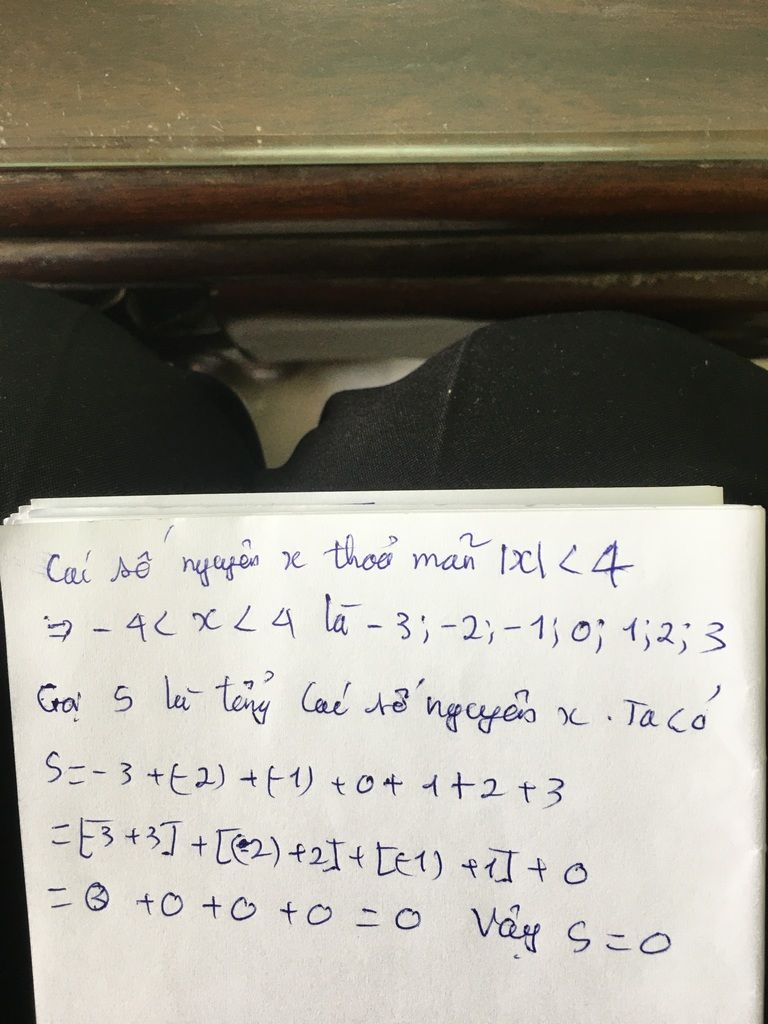 Các số nguyên x thoả mãn |x| < 4
=> - 4 < x < 4 là - 3; -2; -1; 0; 1; 2; 3
Gọi S là tổng các số nguyên x. Ta có
S = - 3 + (-2) + (-1) + 0 + 1 + 2 + 3
= [-3 + 3] + [(-2) + 2] + [(-1) + 1] + 0
= 0 + 0 + 0 + 0 = 0 Vậy S = 0